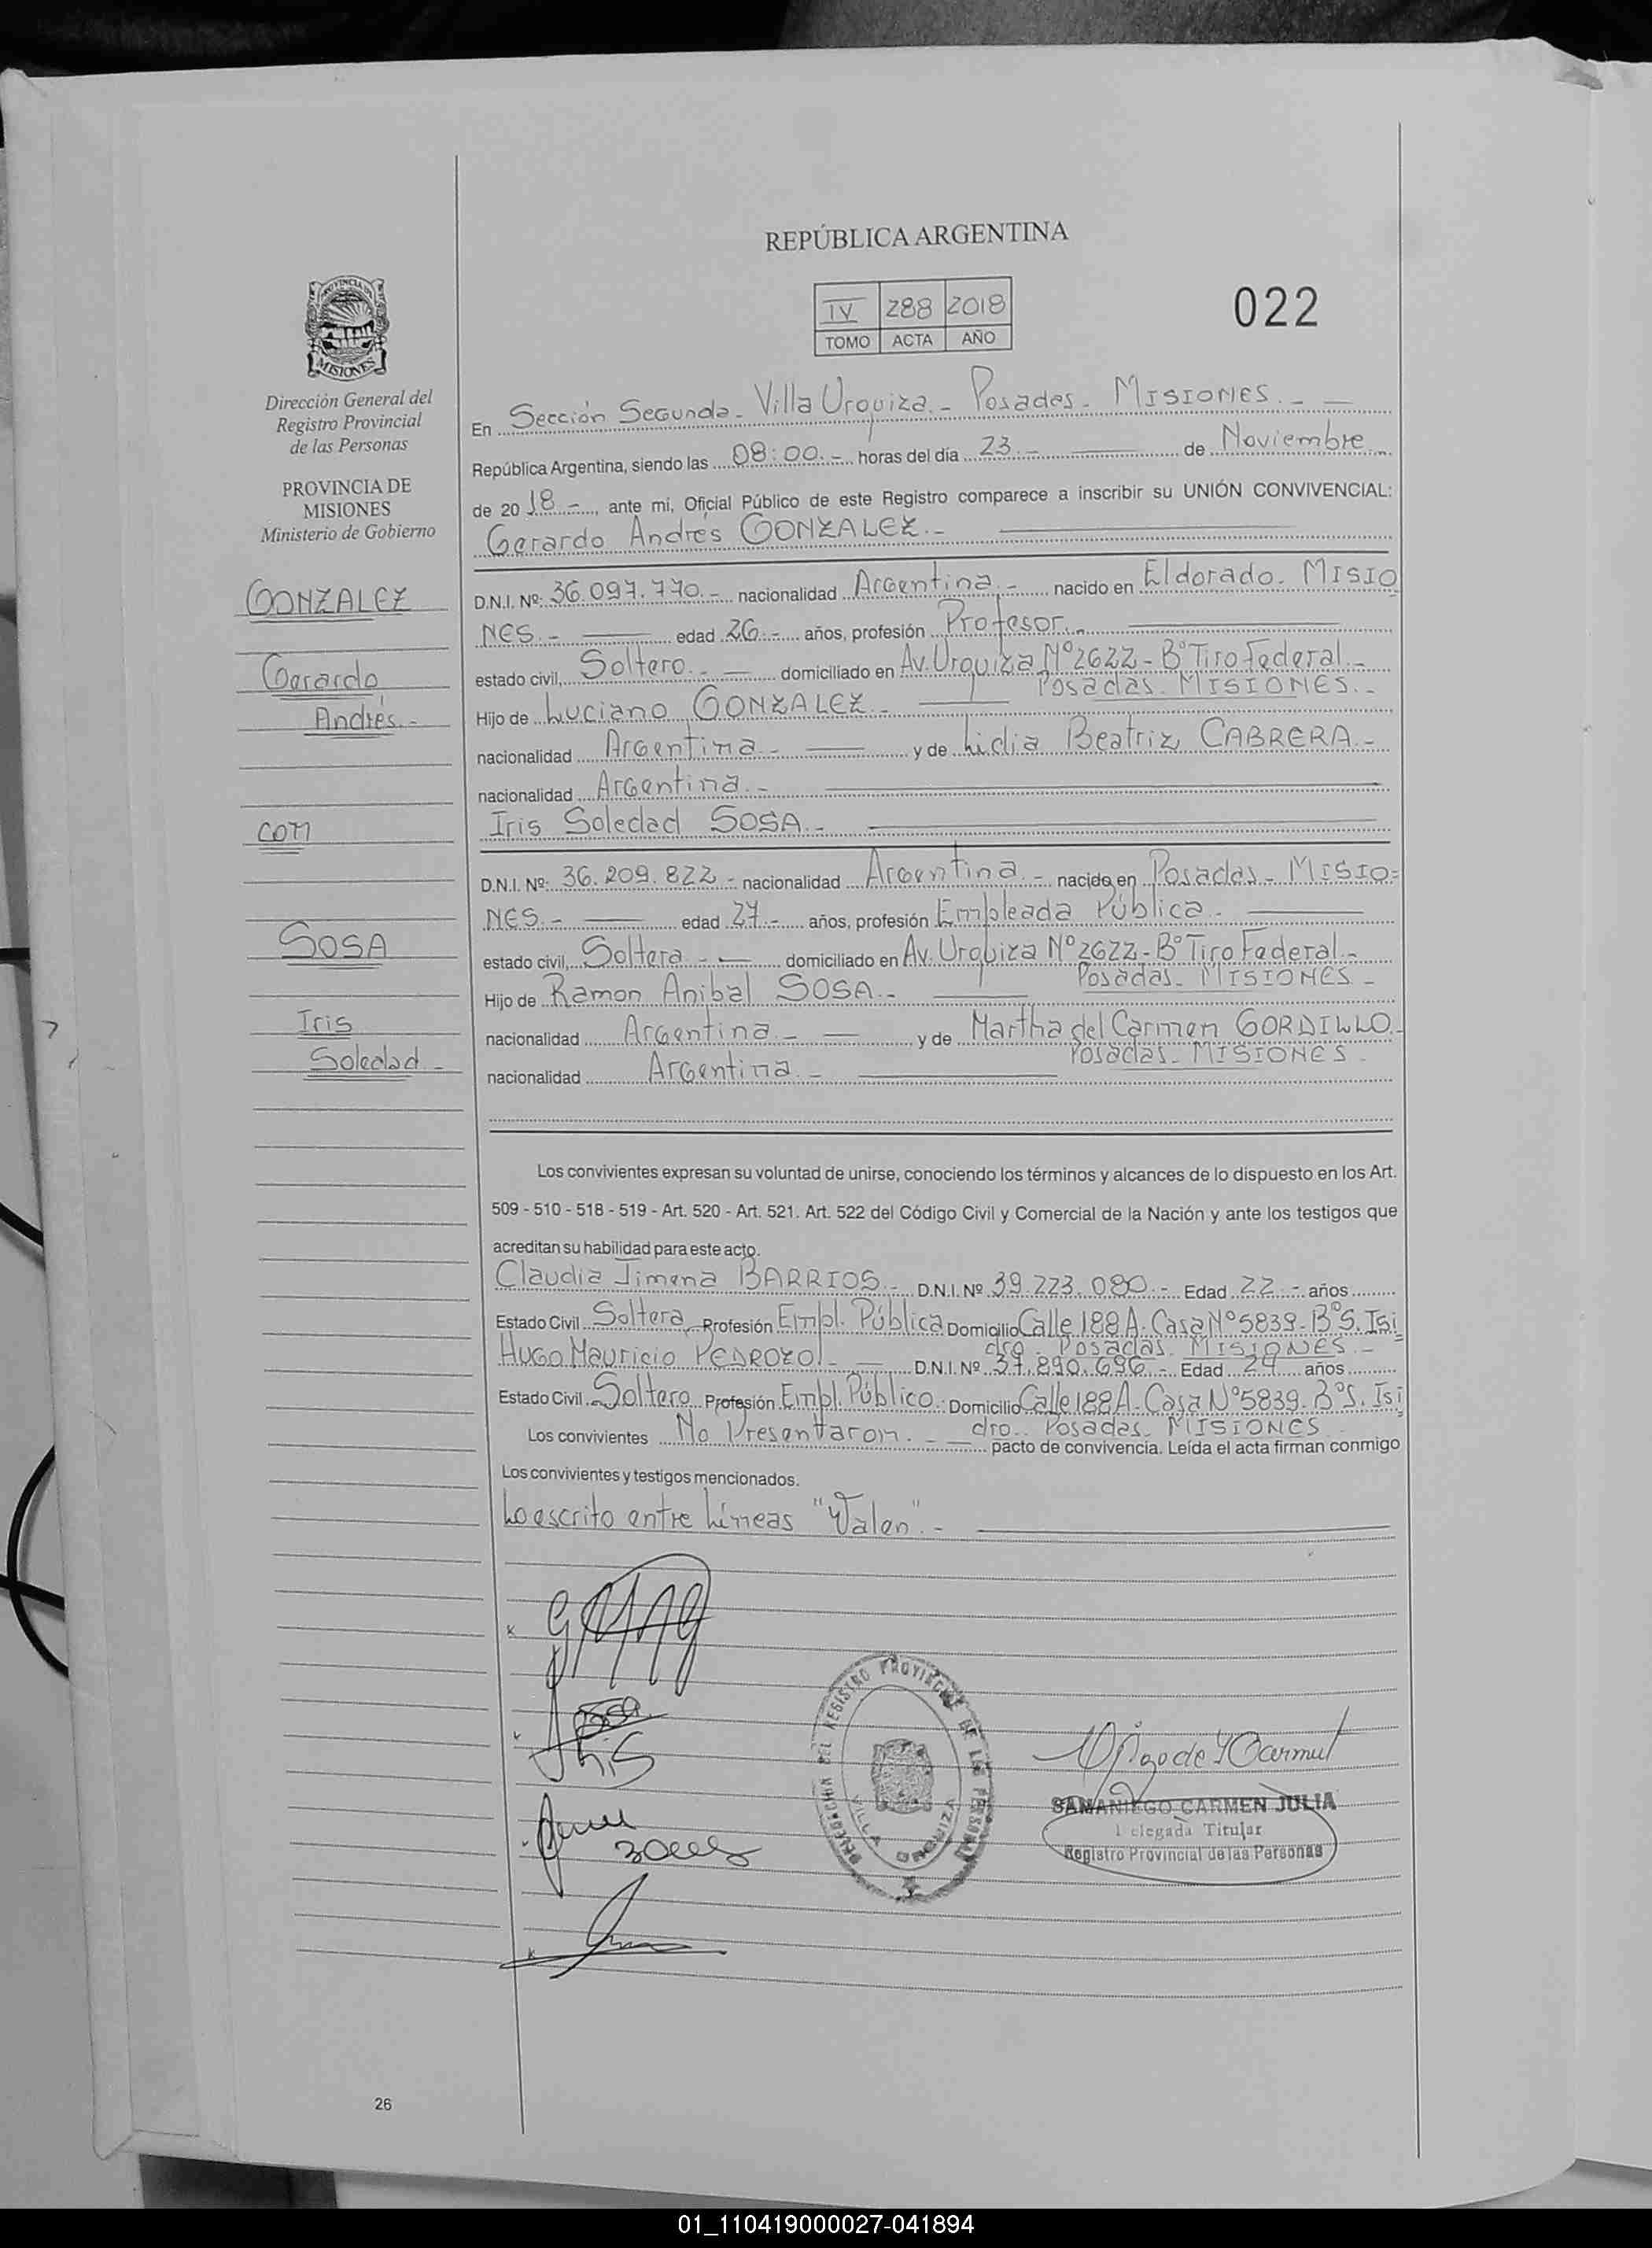 REPÚBLICA ARGENTINA
IV 288 2018
TOMO ACTA AÑO
022
PROVINCIA DE
MISIONES
Dirección General del
Registro Provincial
de las Personas
PROVINCIA DE
MISIONES
Ministerio de Gobierno
GONZALEZ
Gerardo
Andrés.-
con
SOSA
Iris
Soledad.-
En Sección Segunda- Villa Urquiza.- Posadas- MISIONES.- -
República Argentina, siendo las 08:00.- horas del día 23.- de Noviembre
de 2018.-, ante mi, Oficial Público de este Registro comparece a inscribir su UNIÓN CONVIVENCIAL:
Gerardo Andrés GONZALEZ.-
D.N.I. Nº: 36.097.770.- nacionalidad Argentina.- nacido en Eldorado- MISIO
NES.- edad 26.- años, profesión Profesor.-
estado civil, Soltero.- domiciliado en Av. Urquiza Nº2622- Bº Tiro Federal.-
Posadas- MISIONES.-
Hijo de Luciano GONZALEZ.-
nacionalidad Argentina.- y de Lidia Beatriz CABRERA.-
nacionalidad Argentina.-
Iris Soledad SOSA.-
D.N.I. Nº: 36.209.822.- nacionalidad Argentina.- nacido en Posadas- MISIO=
NES.- edad 27.- años, profesión Empleada Pública.-
estado civil, Soltera.- domiciliado en Av. Urquiza Nº2622- Bº Tiro Federal.-
Posadas- MISIONES.-
Hijo de Ramon Anibal SOSA.-
nacionalidad Argentina.- y de Martha del Carmen GORDILLO.-
Posadas- MISIONES.-
nacionalidad Argentina.-
Los convivientes expresan su voluntad de unirse, conociendo los términos y alcances de lo dispuesto en los Art.
509 - 510 - 518 - 519 - Art. 520 - Art. 521. Art. 522 del Código Civil y Comercial de la Nación y ante los testigos que
acreditan su habilidad para este acto.
Claudia Jimena BARRIOS.- D.N.I. Nº 39.223.080.- Edad 22.- años
Estado Civil Soltera Profesión Empl. Pública Domicilio Calle 188 A- Casa Nº5839- Bº S. Isi
dro- Posadas- MISIONES.-
Hugo Mauricio PEDROZO.- D.N.I. Nº 37.890.696.- Edad 24 años
Estado Civil Soltero Profesión Empl. Público. Domicilio Calle 188 A- Casa Nº5839- Bº S. Isi
dro.- Posadas- MISIONES
Los convivientes No Presentaron.- pacto de convivencia. Leída el acta firman conmigo
Los convivientes y testigos mencionados.
Lo escrito entre Líneas "Valen".-
Sosa
Iris
DELEGACION DEL REGISTRO PROVINCIAL DE LAS PERSONAS
VILLA URQUIZA
SAMANIEGO CARMEN JULIA
Delegada Titular
Registro Provincial de las Personas
26
01_110419000027-041894